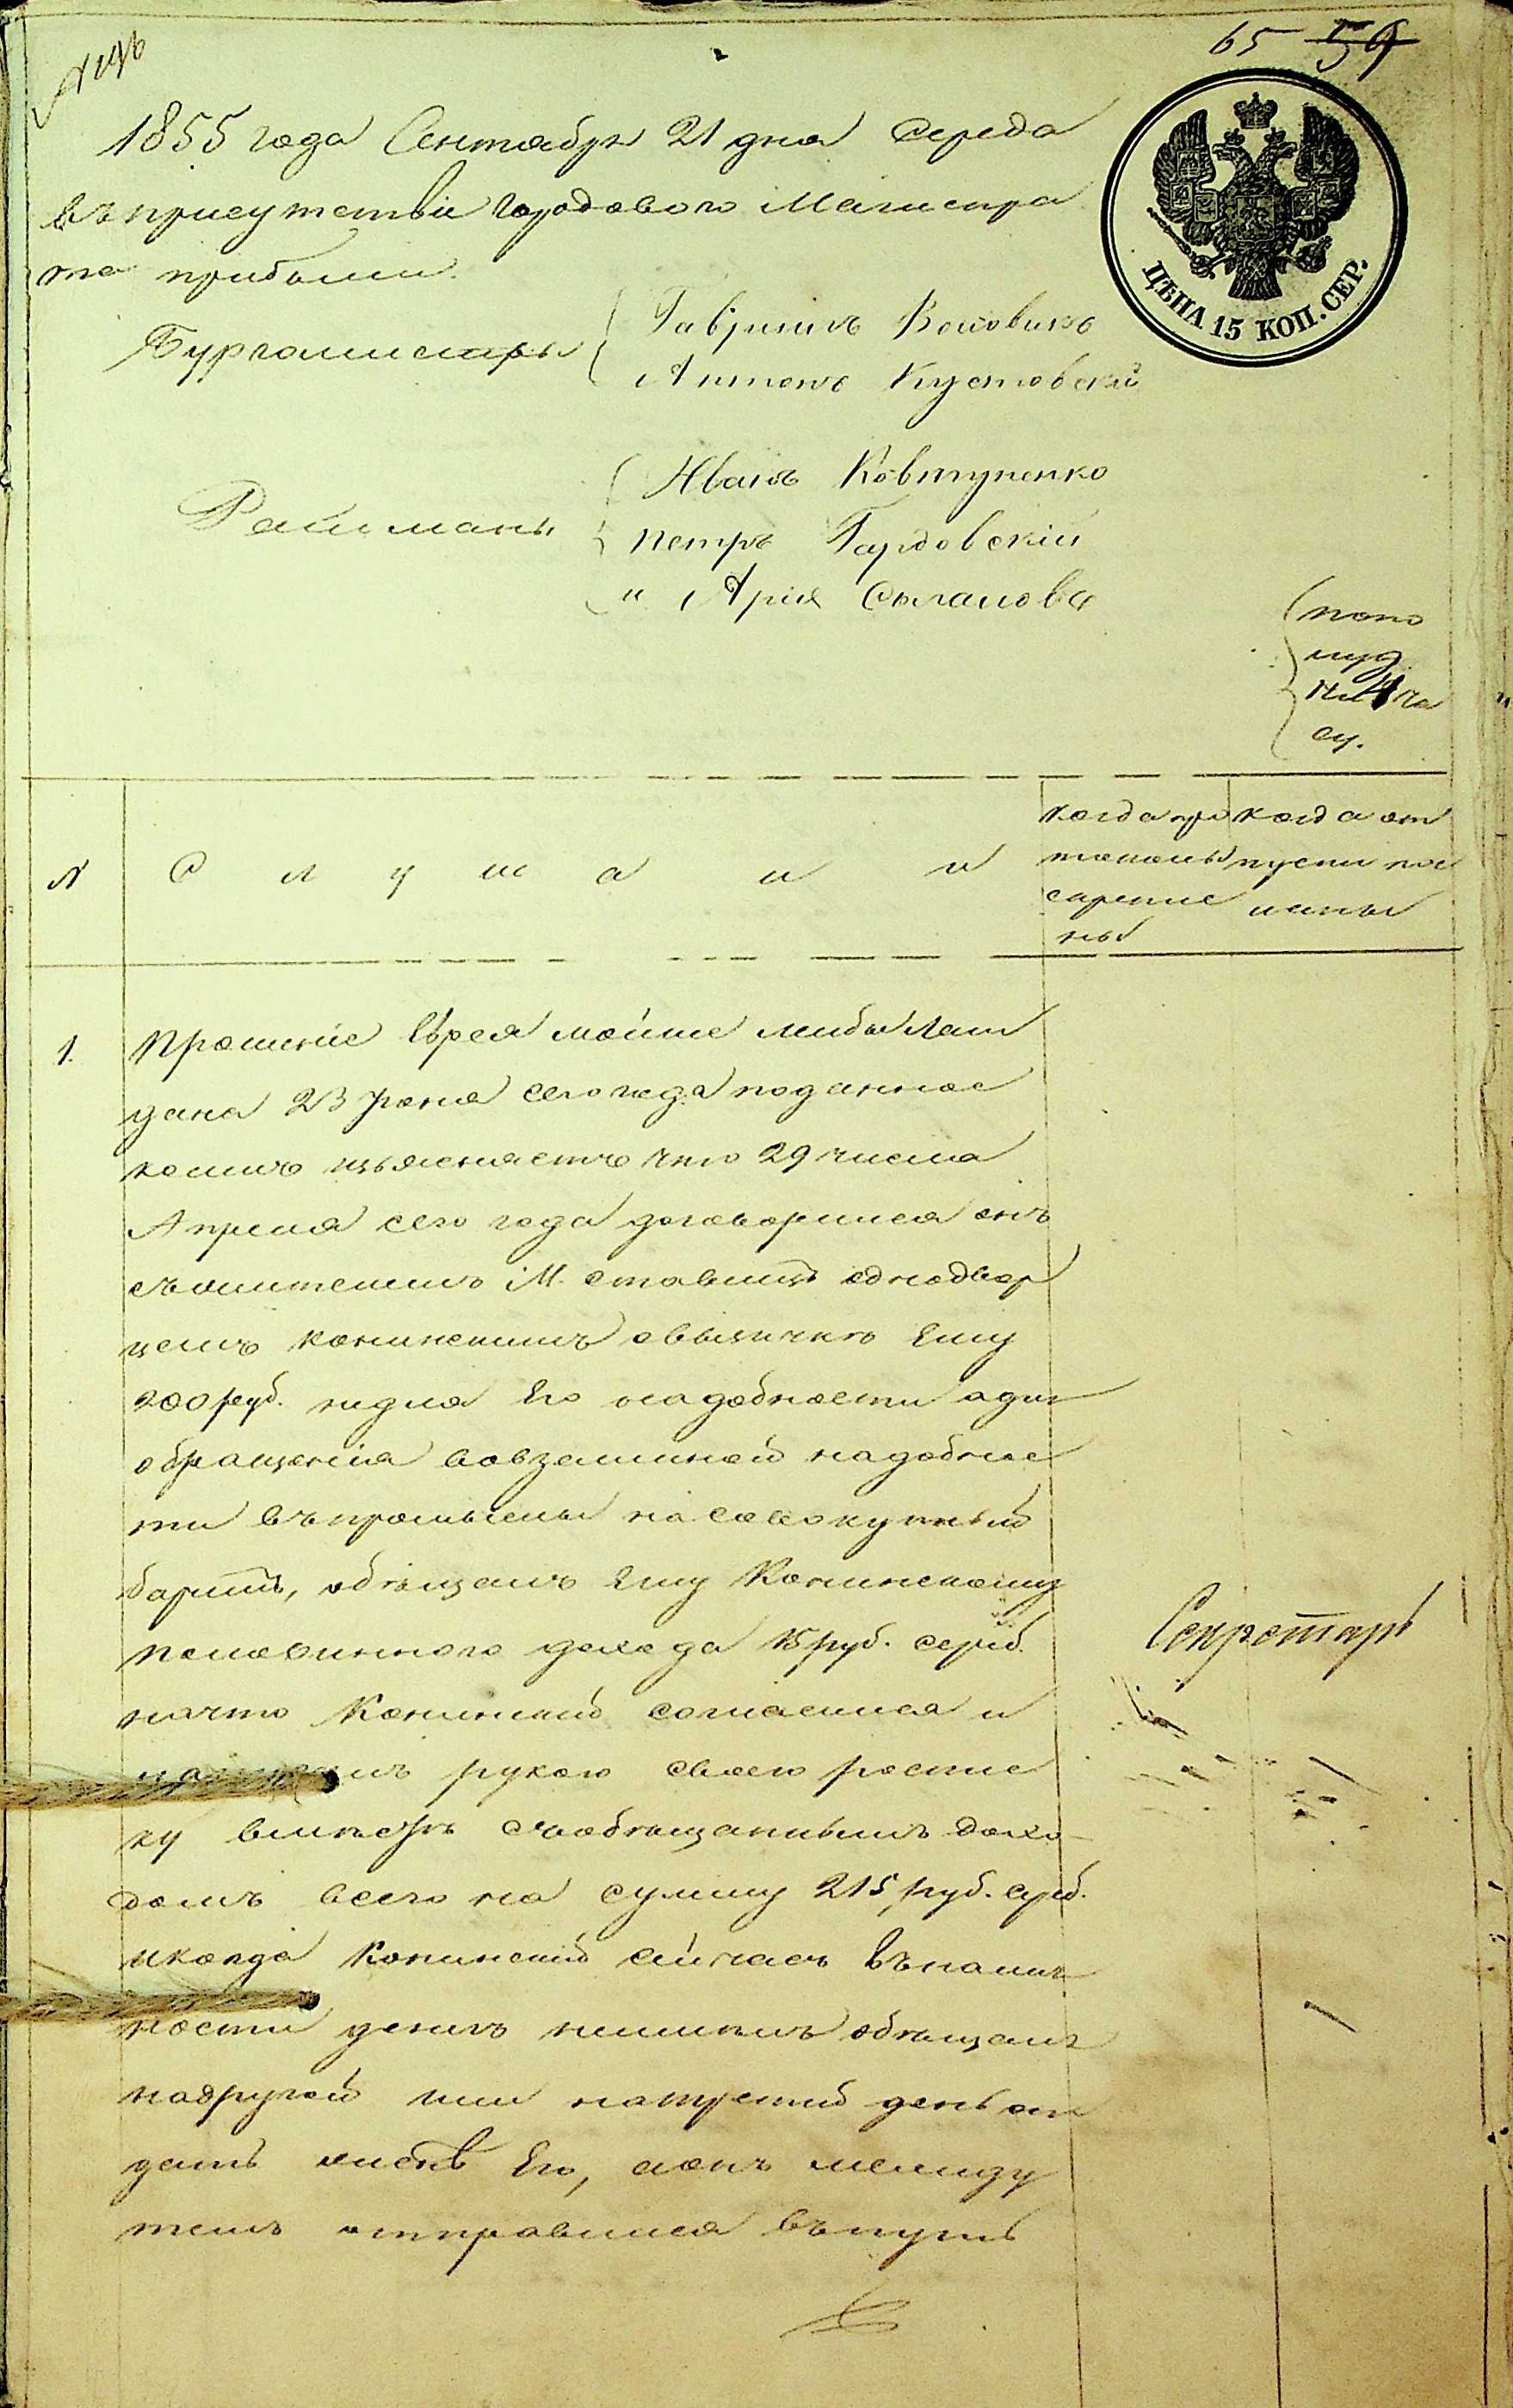 65 59
1855 года Сентября 21 дня Середа
въ присутствіи городоваго Магистра
та прибыли
ЦѢНА 15 КОП. СЕР.
Бургомистры
Гавріилъ
Антонъ Кустовскій
Ратманы
Иванъ Ковтуненко
Петръ Гардовскій
и Арія
попо
луд.
часу.
N
Слушали
когда про
токолы
скрепле
ны
когда от
пуски пос
ланы
1.
Прошеніе Еврея Мойше Лейбы
дана 23 Іюня сего года поданное
коимъ изъясняетъ что 29 числа
Апреля сего года договорился онъ
съ жителемъ М. Ставищъ однодвор
цемъ Конинскимъ о вызычкѣ Ему
200 руб. не для Его надобности а для
обращенія во взаимной надобнос
ти въ промыслы на совокупный
барышъ, обѣщалъ Ему Конинскому
половинного дохода 15 руб. сереб.
на что Конинскій согласился и
рукою своею роспис
ку вмѣстѣ съ обѣщаннымъ дохо
домъ всего на сумму 215 руб. сереб.
и когда Конинскій сейчасъ въ налич
ности денегъ не имелъ обѣщалъ
на другой или на третій день от
дать Его, а онъ между
темъ отправился въ путь
Секретарь